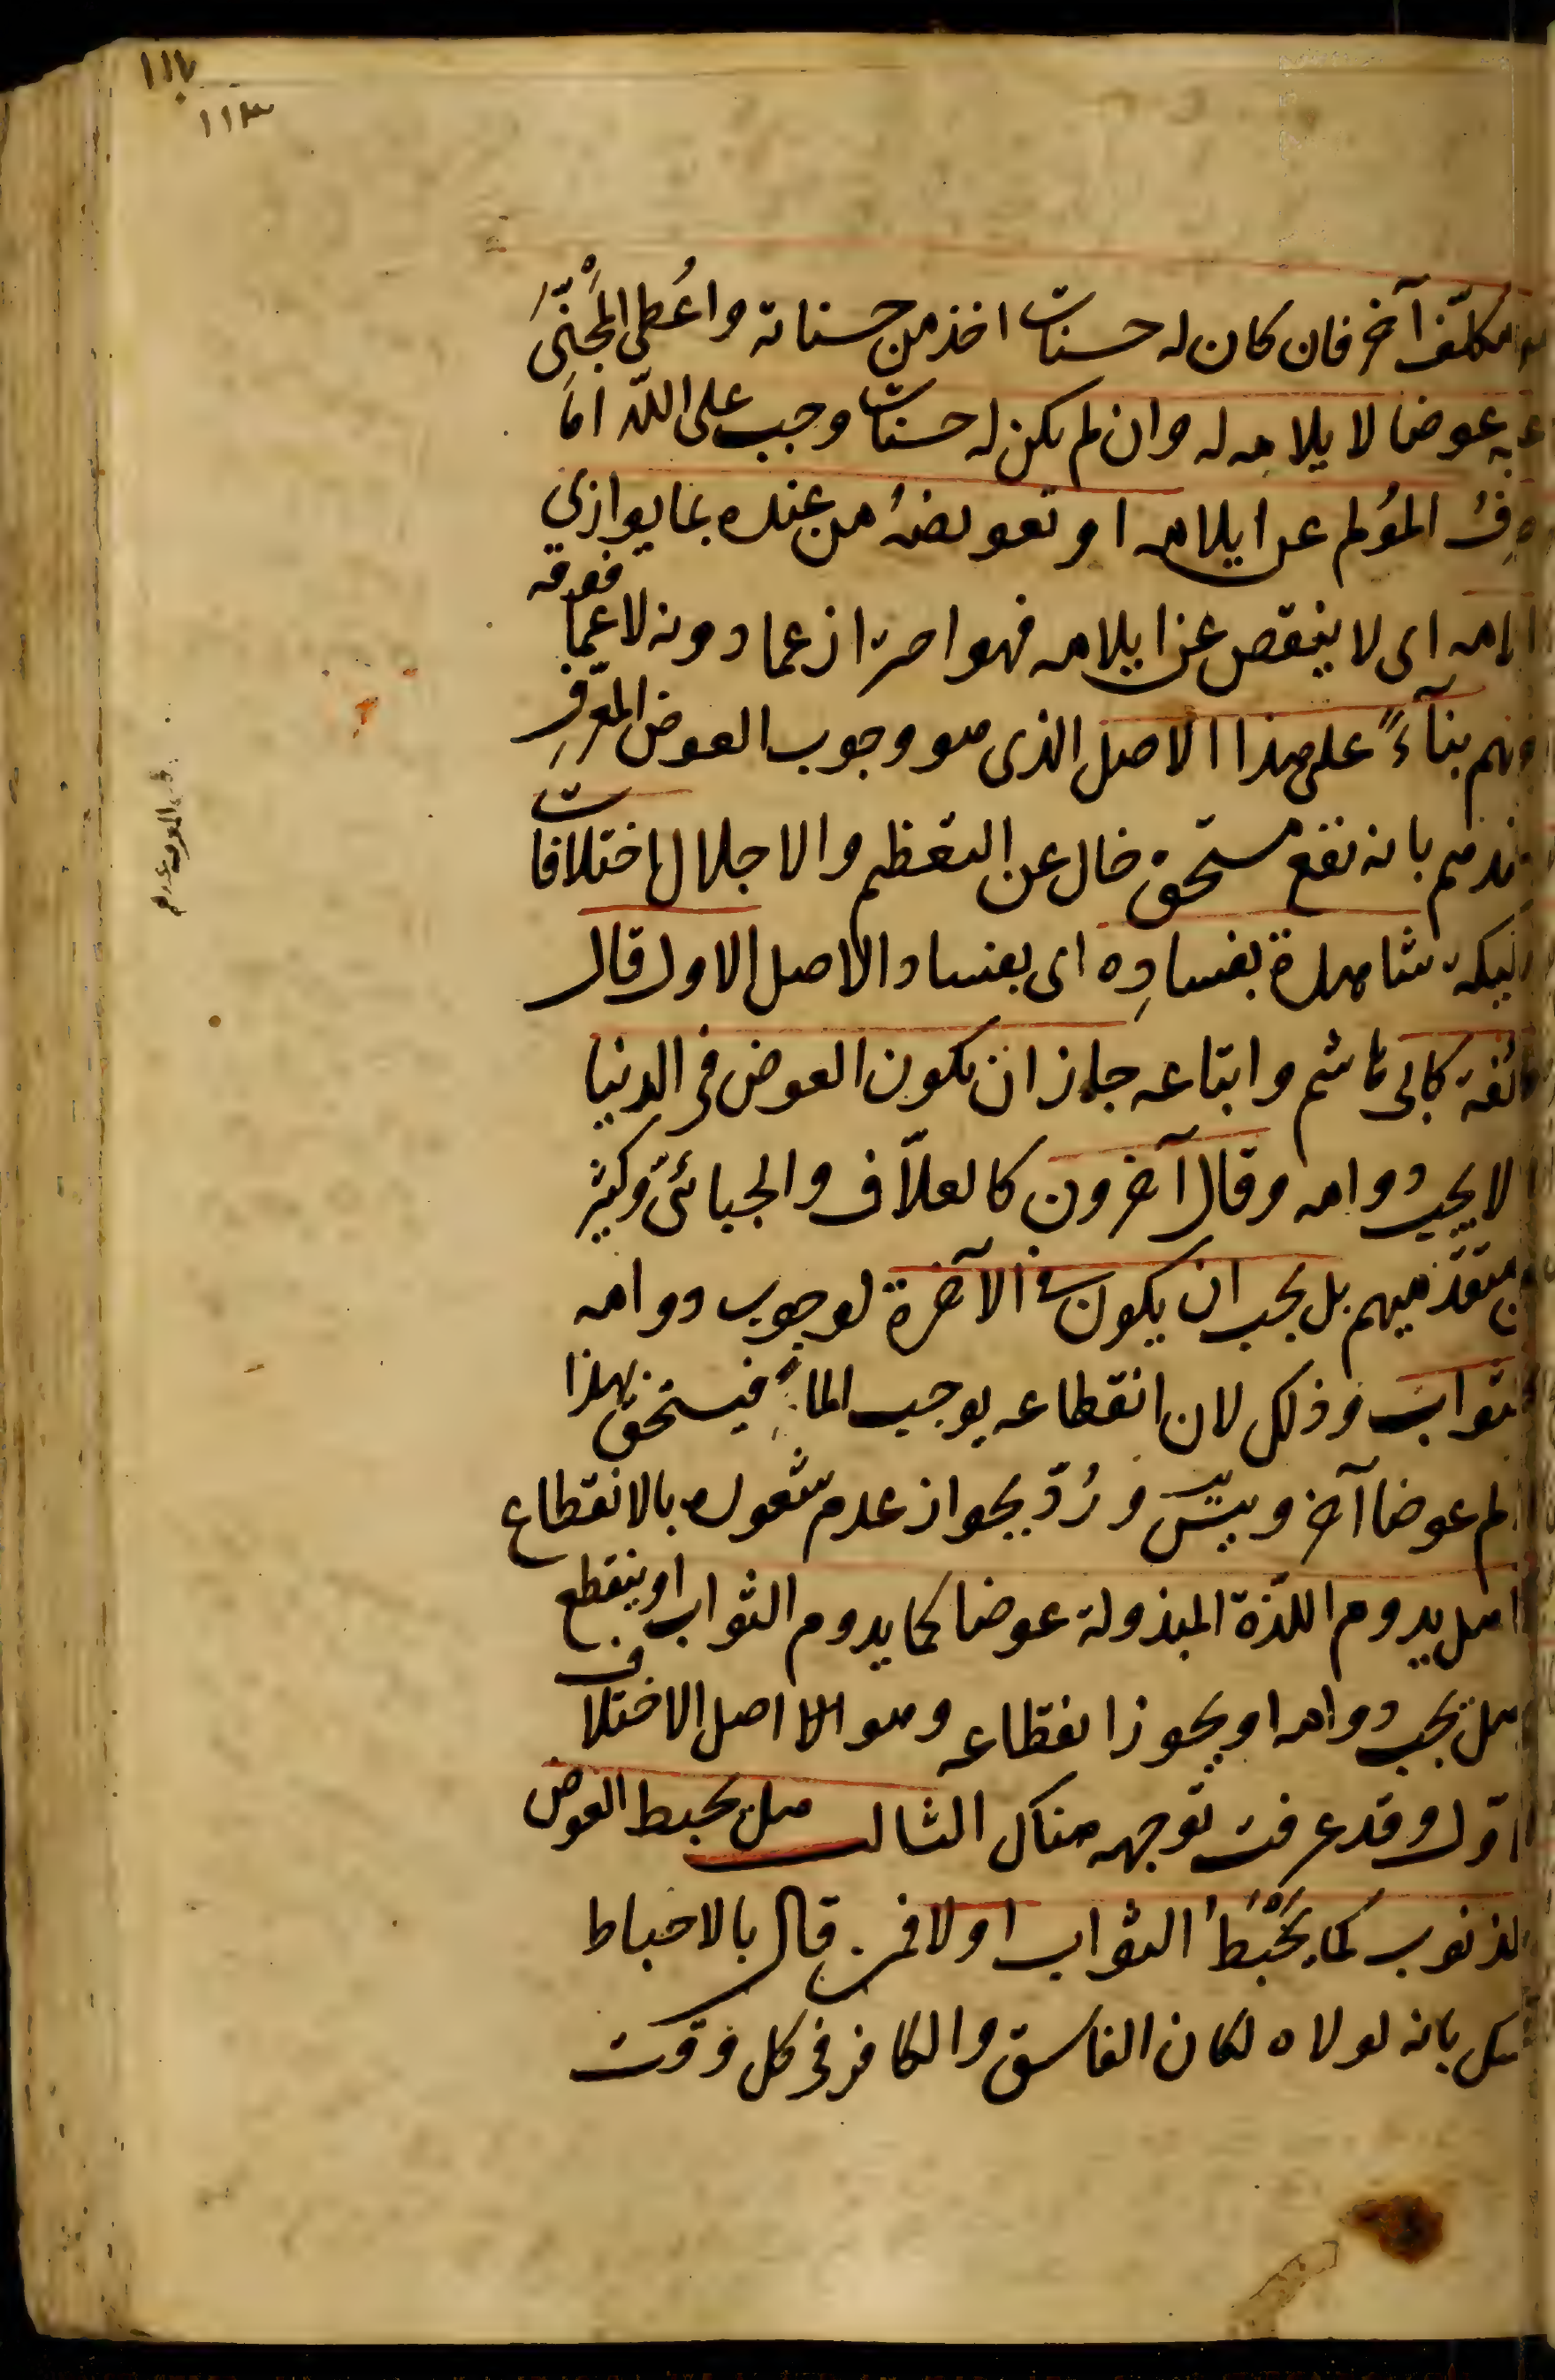 ١١٢
١١٣
مكلّف آخر فان كان له حسنات اخذ من حسناته واُعطى المَجْنِىّ
عوضا لايلامه له وان لم يكن له حسنات وجب على اللّه امّا
المؤلم عن ايلامه او تعويضهُ من عنده بما يوازى
اى لا ينقص عن ايلامه فهو احتراز عما دونه لا عما فوقه
بنآءً على هذا الاصل الذى هو وجوب العوض المعرّف
بانه نفع مستحق خال عن التعظيم والاجلال اختلافات
شاهدة بفسادِه اى بفساد الاصل الاول قال
كابى هاشم واتباعه جاز ان يكون العوض فى الدنيا
لا يجب دوامه وقال آخرون كالعلّاف والجبائىّ وكثير
متقدّميهم بل يجب ان يكون فى الآخرة لوجوب دوامه
وذلك لان انقطاعه يوجب الما فيستحق بهذا
عوضا آخر ويتسلسل ورُدّ بجواز عدم شعوره بالانقطاع
هل يدوم اللذّة المبذولة عوضا كما يدوم الثواب او ينقطع
هل يجب دوامه او يجوز انقطاعه وهو اصل الاختلاف
وقد عرفت توجيهه هناك الثالث هل يحبط العوض
كما يُحْبَطُ الثواب او لا فمن قال بالاحباط
بانه لولاه لكان الفاسق والكافر فى كل وقت